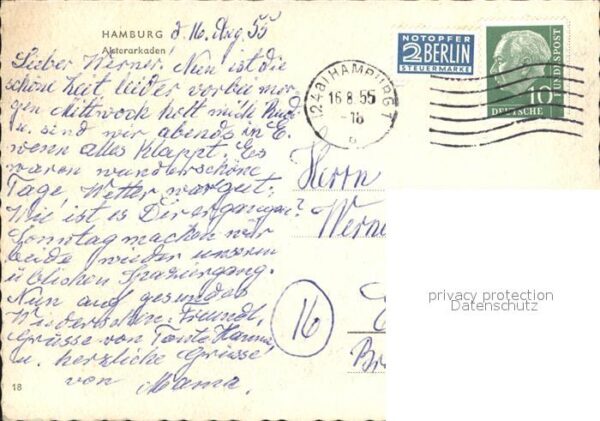 HAMBURG
Alsterarkaden
d. 16. Aug 55
Lieber Werner! Nun ist die
schöne Zeit leider vorbei mor
gen Mittwoch holt mich Rudi
u. sind wir abends in E.
wenn alles klappt. Es
waren wunderschöne
Tage, Wetter war gut.
Wie ist es Dir ergangen?
Sonntag machen wir
beide wieder unseren
üblichen Spaziergang.
Nun auf gesundes
Wiedersehen. Freundl.
Grüsse von Tante Hanna
u. herzliche Grüsse
von Mama.
18
NOTOPFER
2 BERLIN
STEUERMARKE
(24a) HAMBURG 7
16.8.55
-18
DEUTSCHE
BUNDESPOST
10
Herrn
Werne
16
privacy protection
Datenschutz